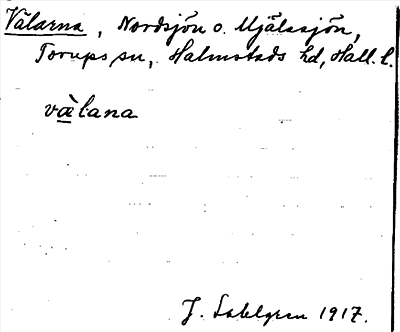 Välarna, Nordsjön o. Mjälasjön,
Torups sn, Halmstads hd, Hall. l.
væ̀lana
J. Sahlgren 1917.